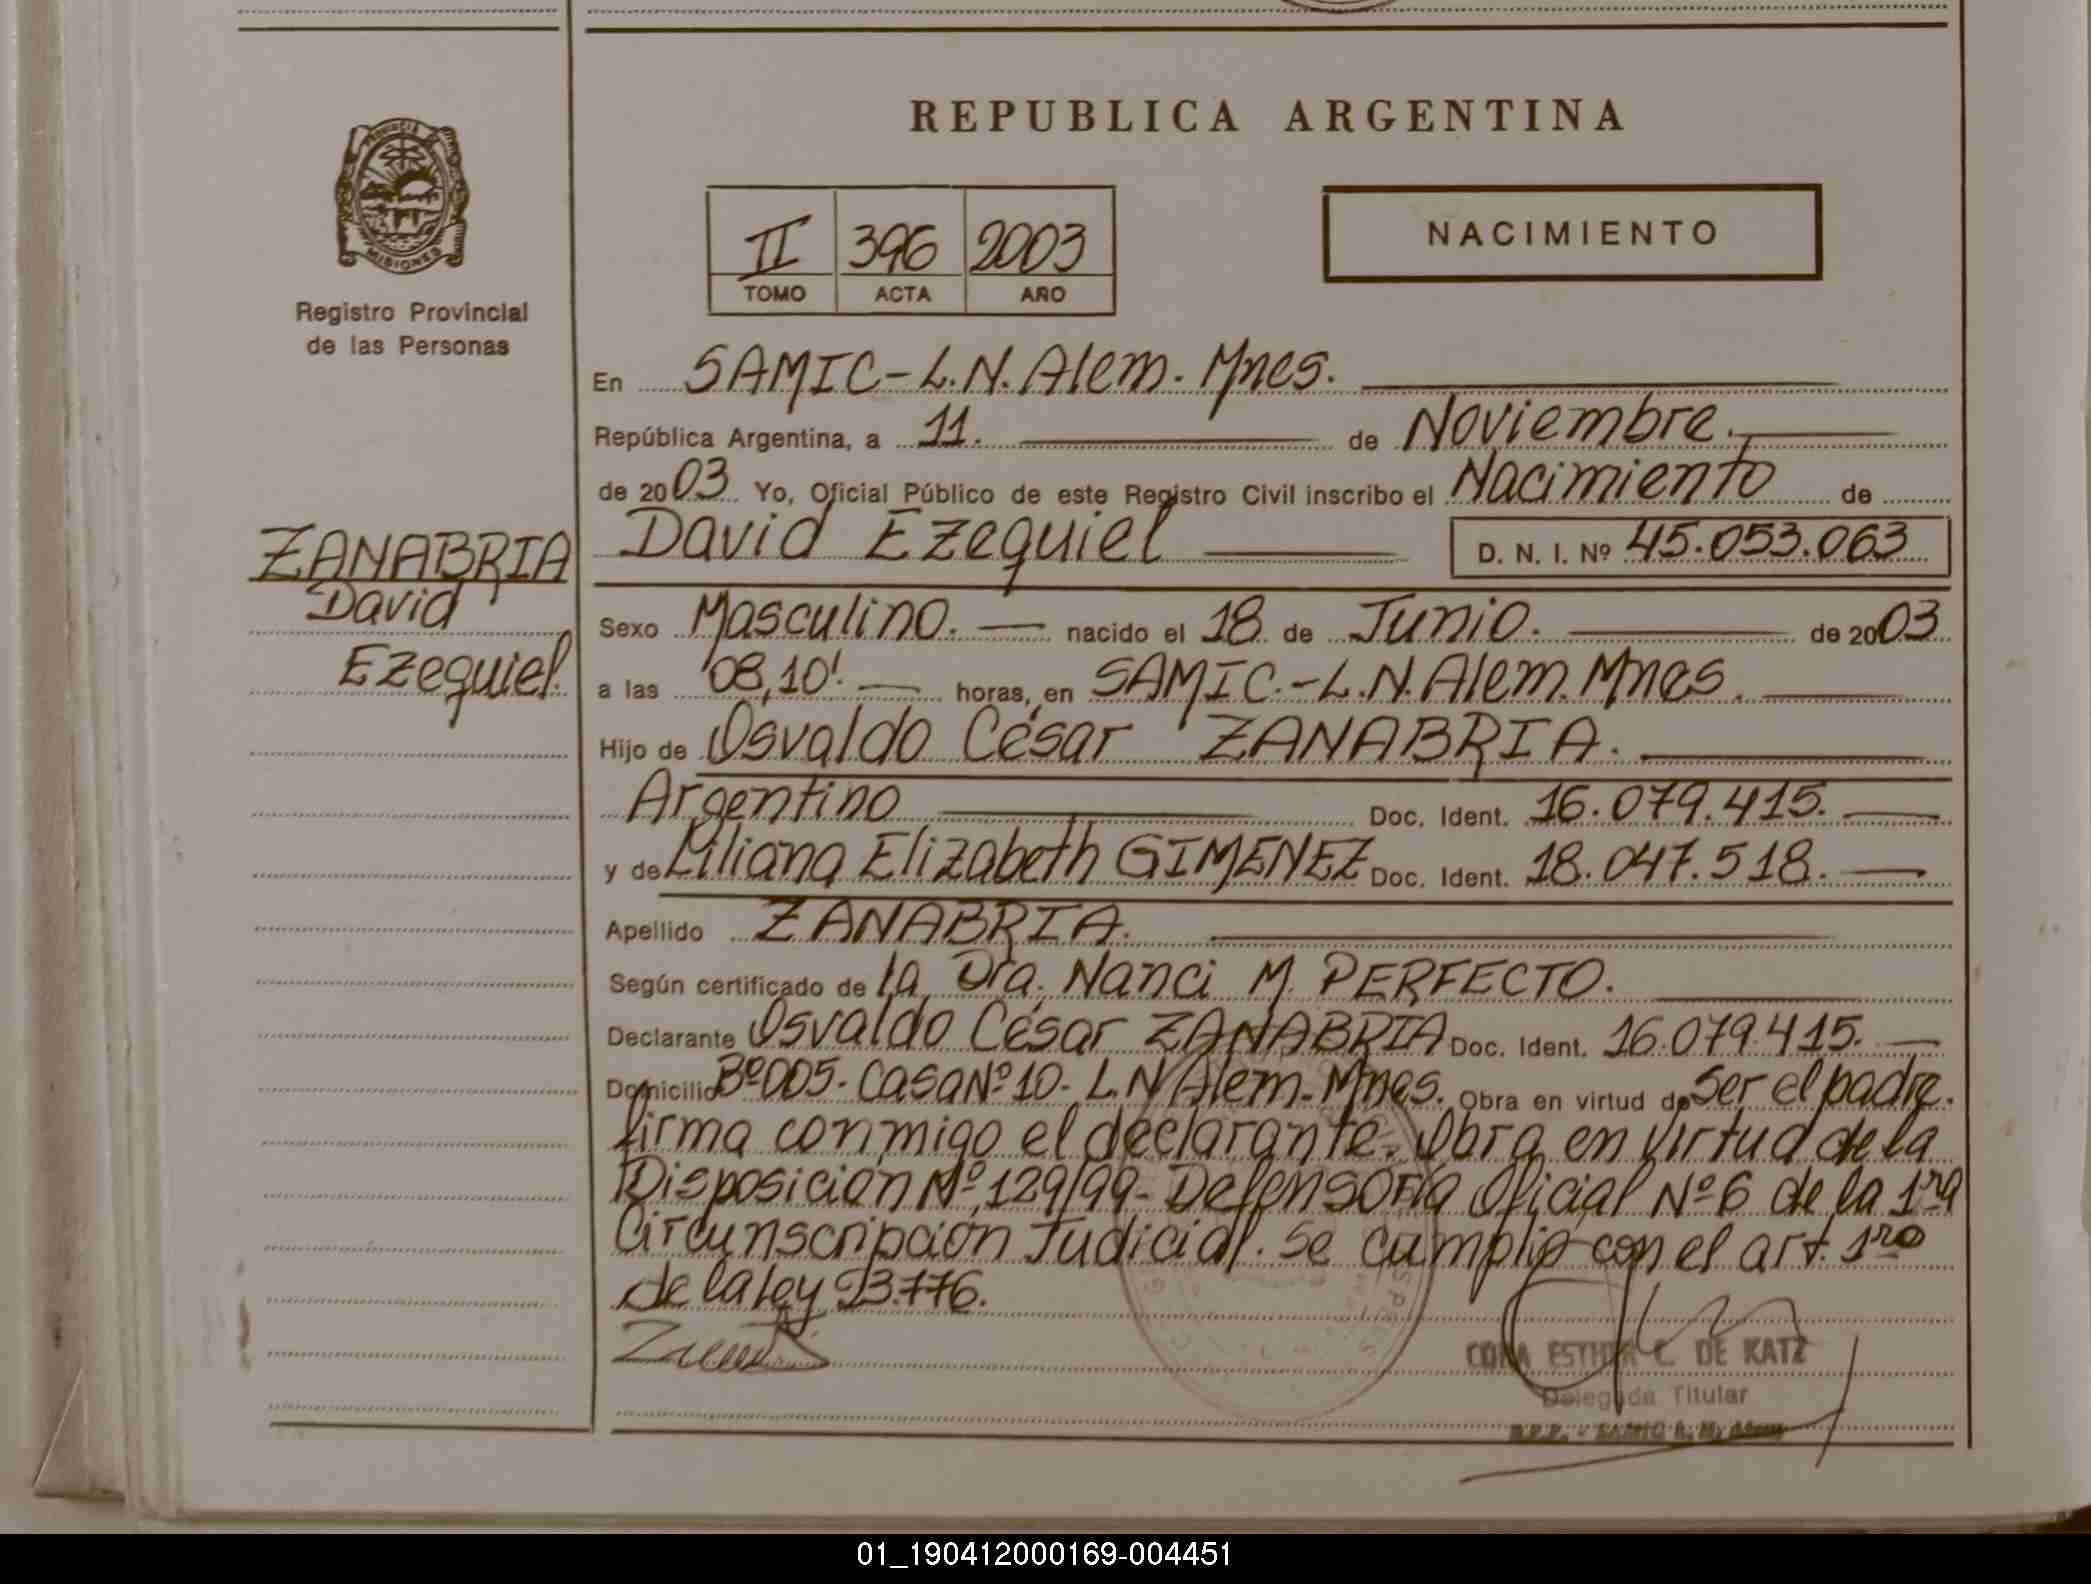 REPUBLICA ARGENTINA
PROVINCIA DE
MISIONES
Registro Provincial
de las Personas
II 396 2003
TOMO ACTA AÑO
NACIMIENTO
En SAMIC-L.N.Alem.Mnes.
República Argentina, a 11. de Noviembre.
de 2003 Yo, Oficial Público de este Registro Civil inscribo el Nacimiento de
ZANABRIA
David
Ezequiel.
David Ezequiel D. N. I. Nº 45.053.063
Sexo Masculino. nacido el 18 de Junio. de 2003
a las 08,10'. horas, en SAMIC.-L.N.Alem.Mnes.
Hijo de Osvaldo César ZANABRIA.
Argentino Doc. Ident. 16.079.415.
y de Liliana Elizabeth GIMENEZ Doc. Ident. 18.047.518.
Apellido ZANABRIA.
Según certificado de la Dra. Nanci M. PERFECTO.
Declarante Osvaldo César ZANABRIA Doc. Ident. 16.079.415.
Domicilio Bº005-CasaNº10-L.N.Alem-Mnes. Obra en virtud de Ser el padre.
firma conmigo el declarante. Obra en virtud de la
Disposición Nº129/99-Defensoría Oficial Nº6 de la 1ra
Circunscripción Judicial. Se cumplio con el art. 1ro
de la ley 23.776.
CORA ESTHER C. DE KATZ
Delegada Titular
R.P.P. - SAMIC L. N. Alem
01_190412000169-004451